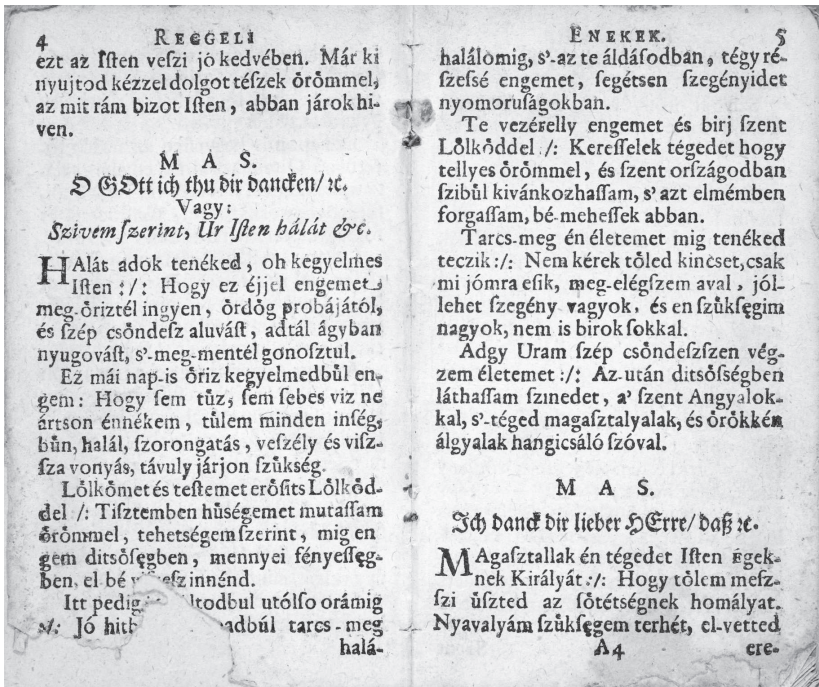 4 REGGELI
ezt az Iſten veſzi jó kedvében. Már ki
nyujtod kézzel dolgot tészek oͤroͤmmel,
az mit rám bizot Iſten, abban járok hi-
ven.
M A S.
O GOtt ich thu dir dancken/ ꝛc.
Vagy:
Szivem ſzerint, Ur Iſten hálát &c.
HAlát adok tenéked, oh kegyelmes
Iſten :/: Hogy ez éjjel engemet
meg-oͤriztél ingyen, oͤrdoͤg probájától,
és ſzép csoͤndeſz aluváſt, adtál ágyban
nyugováſt, s'-meg-mentél gonoſztul.
Ez mái nap-is oͤriz kegyelmedbuͤl en-
gem: Hogy ſem tuͤz, ſem ſebes viz ne
ártson énnékem, tuͤlem minden inſég,
buͤn, halál, ſzorongatás, veſzély és viſz-
ſza vonyás, távuly járjon ſzuͤkség.
Loͤlkoͤmet és teſtemet eroͤſits Loͤlkoͤd-
del /: Tiſztemben huͤségemet mutaſſam
oͤroͤmmel, tehetségem ſzerint, mig en
gem ditsoͤſęgben, mennyei fényeſſęg-
ben, el-bé innénd.
Itt pedig utólſo orámig
:/: Jó tarcs-meg
halá-
ENEKEK. 5
halálomig, s'-az te áldáſodban, tégy ré-
ſzeſsé engemet, ſegétsen ſzegényidet
nyomoruſágokban.
Te vezérelly engemet és birj ſzent
Loͤlkoͤddel :/: Kereſſelek tégedet hogy
tellyes oͤroͤmmel, és ſzent orſzágodban
ſzibuͤl kivánkozhaſſam, s' azt elmémben
forgaſſam, bé-meheſſek abban.
Tarcs-meg én életemet mig tenéked
teczik :/: Nem kérek toͤled kincset, csak
mi jómra eſik, meg-elégſzem aval, jól-
lehet ſzegény vagyok, és en ſzuͤkſęgim
nagyok, nem is birok ſokkal.
Adgy Uram ſzép csoͤndeſzſzen vég-
zem életemet :/: Az-után ditsoͤſségben
láthaſſam ſzinedet, a' ſzent Angyalok-
kal, s'-téged magaſztalyalak, és oͤroͤkkén
álgyalak hangicsáló ſzóval.
M A S.
Ich danck dir lieber HErre/ daß ꝛc.
MAgaſztallak én tégedet Iſten Egek-
nek Királyát :/: Hogy toͤlem meſz-
ſzi uͤſzted az ſoͤtétségnek homályat.
Nyavalyám ſzuͤkſęgem terhét, el-vetted
A4 ere-